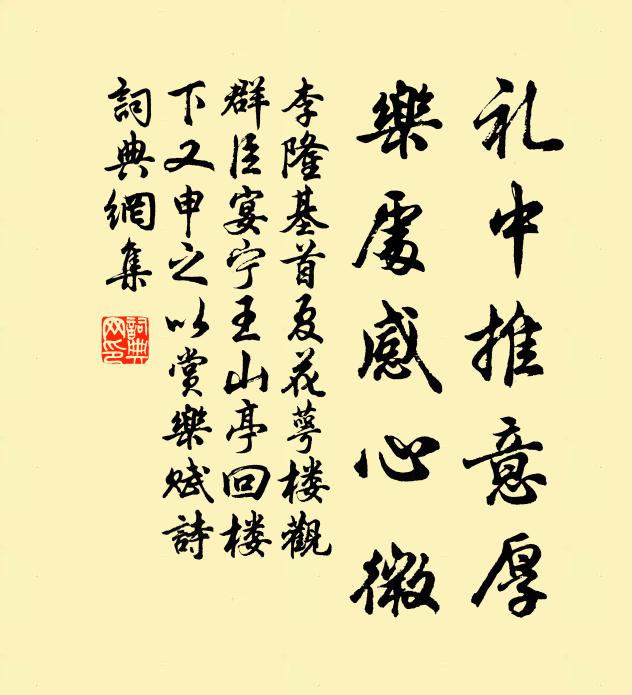 礼中推意厚
樂處感心微
李隆基首夏花萼楼觀
群臣宴宁王山亭回楼
下又申之以賞樂赋詩
詞典網集
詞典
网印